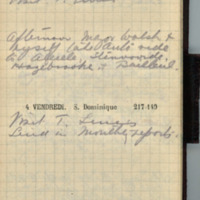 Afternoon Major Walsh &
myself take Auto ride
to Aecke, Steenvoorde,
Hazebrouke & Bailleul.
4 VENDREDI. S. Dominique 217-149
Visit T. Lines
Send in Monthly reports.